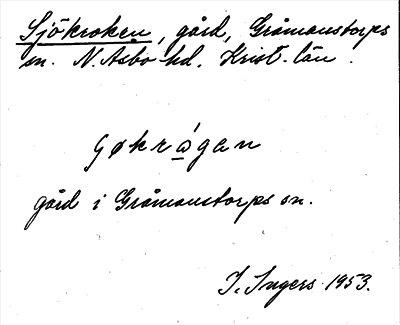 Sjökroken, gård, Gråmanstorps
sn. N. Åsbo hd. Krist. län.
gøkrǻgan
gård i Gråmanstorps sn.
I. Ingers 1953.